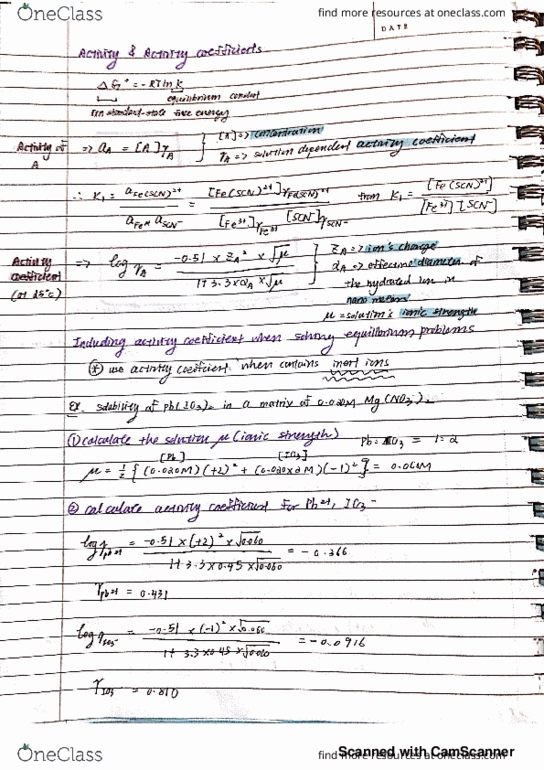 OneClass
find more resources at oneclass.com
DATE
Activity & Activity coefficients
ΔG° = -RT ln k
equilibrium constant
standard-state free energy
Activity of A => aA = [A]γA
[A] => concentration
γA => solution dependent activity coefficient
∴ K1 = aFe(SCN)²⁺ / aFe³⁺ aSCN⁻ = [Fe(SCN)²⁺]γFe(SCN)²⁺ / [Fe³⁺]γFe³⁺ [SCN⁻]γSCN⁻ from K1 = [Fe(SCN)²⁺] / [Fe³⁺][SCN⁻]
Activity coefficient (at 25°C) => log γA = -0.51 × ZA² × √μ / 1 + 3.3 × αA × √μ
ZA => ion's charge
αA => effective diameter of
the hydrated ion in
nano meters
μ = solution's ionic strength
Including activity coefficient when solving equilibrium problems
(*) use activity coeficient when contains inert ions
Ex. solubility of Pb(IO3)2 in a matrix of 0.020M Mg(NO3)2
(1) calculate the solution μ (ionic strength)
= 1:2
[Pb] [IO3]
μ = 1/2 { (0.020M)(+2)² + (0.020×2M)(-1)² } = 0.060M
② calculate activity coefficient for Pb²⁺, IO3⁻
log γPb²⁺ = -0.51 × (+2)² × √0.060 / 1 + 3.3 × 0.45 × √0.060 = -0.366
γPb²⁺ = 0.431
log γIO3⁻ = -0.51 × (-1)² × √0.060 / 1 + 3.3 × 0.45 × √0.060 = -0.0916
γIO3 = 0.810
OneClass
find more resources at oneclass.com
Scanned with CamScanner